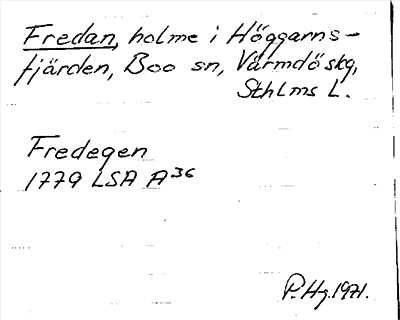 Fredan, holme i Höggarns-
fjärden, Boo sn, Värmdö skg,
Sthlms L.
Fredegen
1779 LSA A36
P. Hg. 1971.